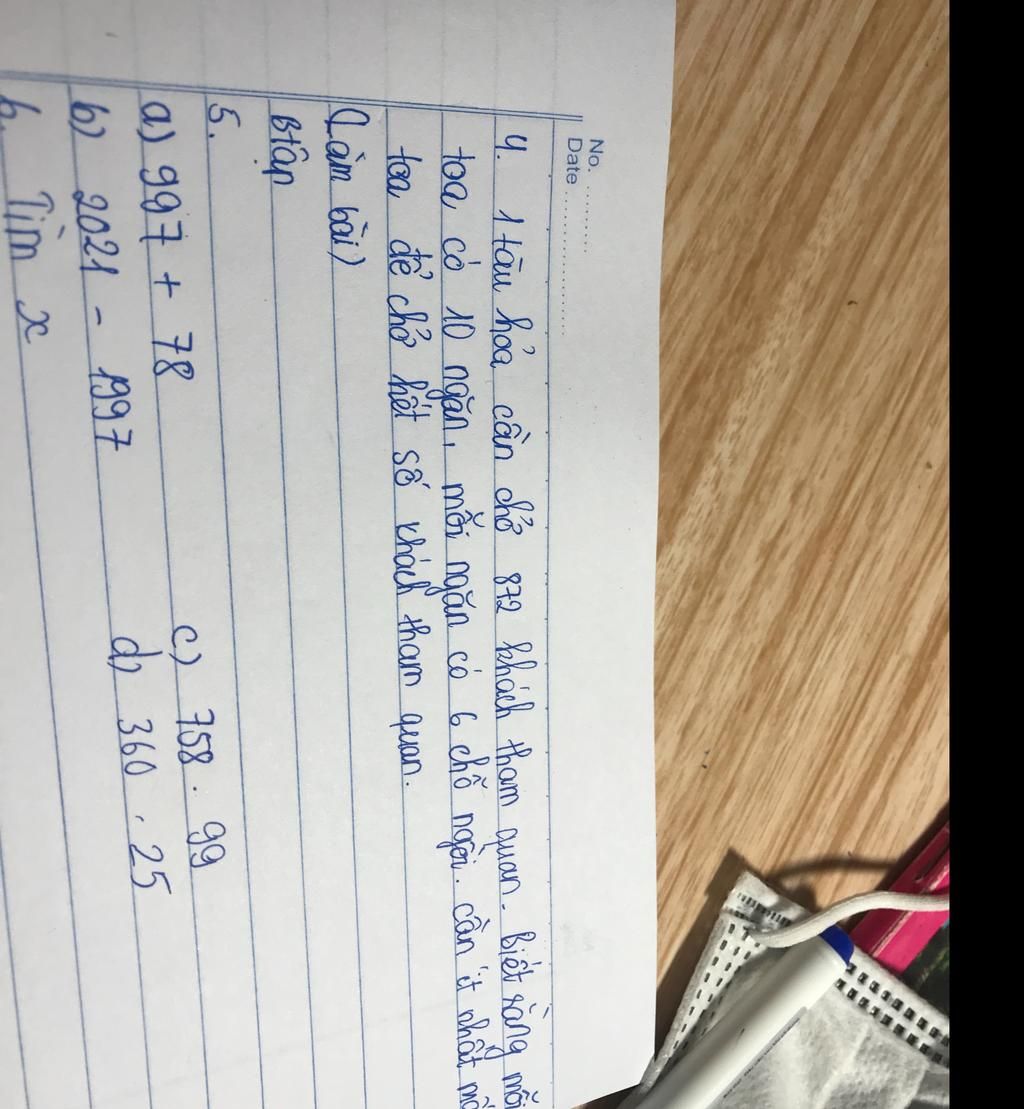 No. ............
Date ......................
4. 1 tàu hỏa cần chở 872 khách tham quan. biết rằng mỗi
toa có 10 ngăn, mỗi ngăn có 6 chỗ ngồi. cần ít nhất
toa để chở hết số khách tham quan.
(Làm bài)
Btập
5.
a) 997 + 78 c) 758 . 99
b) 2021 - 1997 d) 360 . 25
6. Tìm x